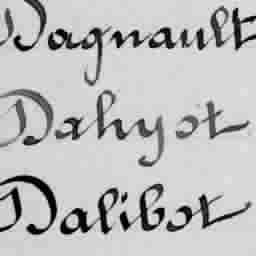 Dagnault
Dahyot
Dalibot